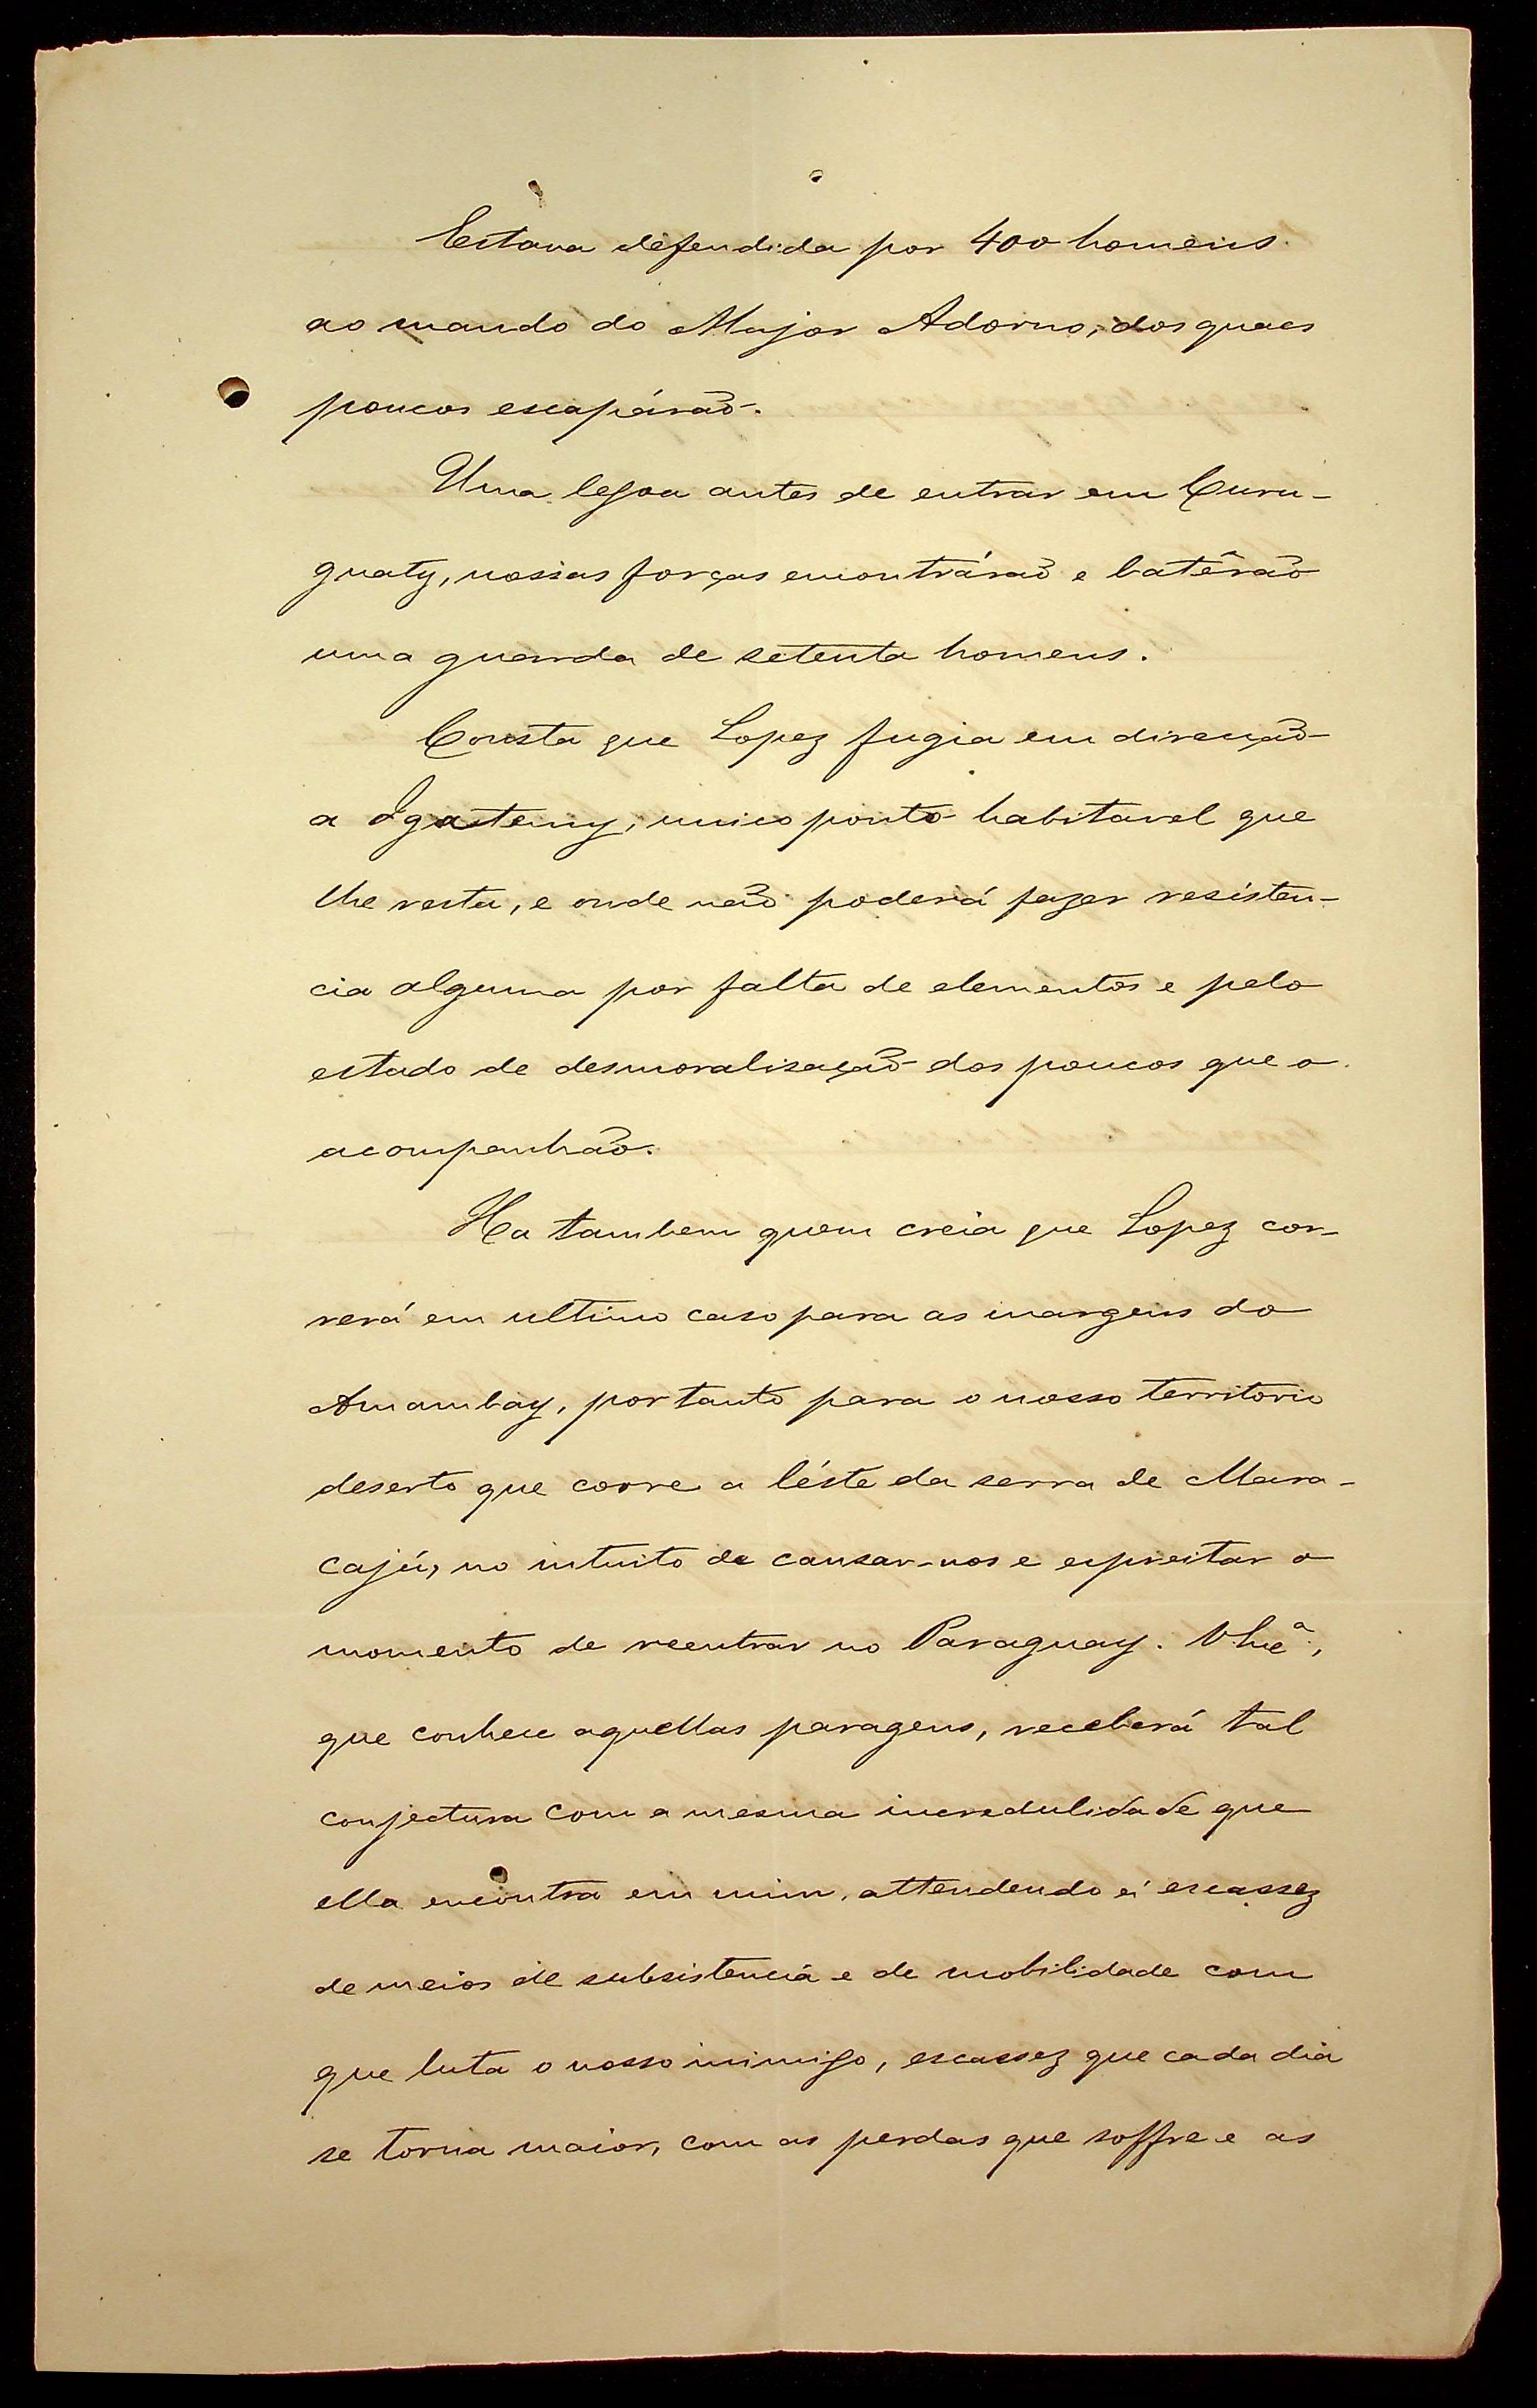 Estava defendida por 400 homens
ao mando do Major Adorno, dos quaes
poucos escapárão.
Uma legoa antes de entrar em Curu-
guaty, nossas forças encontrárão e batêrão
uma guarda de setenta homens.
Consta que Lopez fugia em direcção
a Igatemy, unico ponto habitavel que
lhe resta, e onde não poderá fazer resisten-
cia alguma por falta de elementos e pelo
estado de desmoralisação dos poucos que o
acompanhão.
Ha tambem quem creia que Lopez cor-
rerá em ultimo caso para as margens do
Amambay, por tanto para o nosso territorio
deserto que corre a léste da serra de Mara-
cajú, no intuito de cansar-nos e espreitar o
momento de reentrar no Paraguay.
que conhece aquellas paragens, receberá tal
conjectura com a mesma incredulidade que
ella encontra em mim, attendendo á escassez
de meios de subsistencia e de mobilidade com
que luta o nosso inimigo, escassez que cada dia
se torna maior, com as perdas que soffre e as